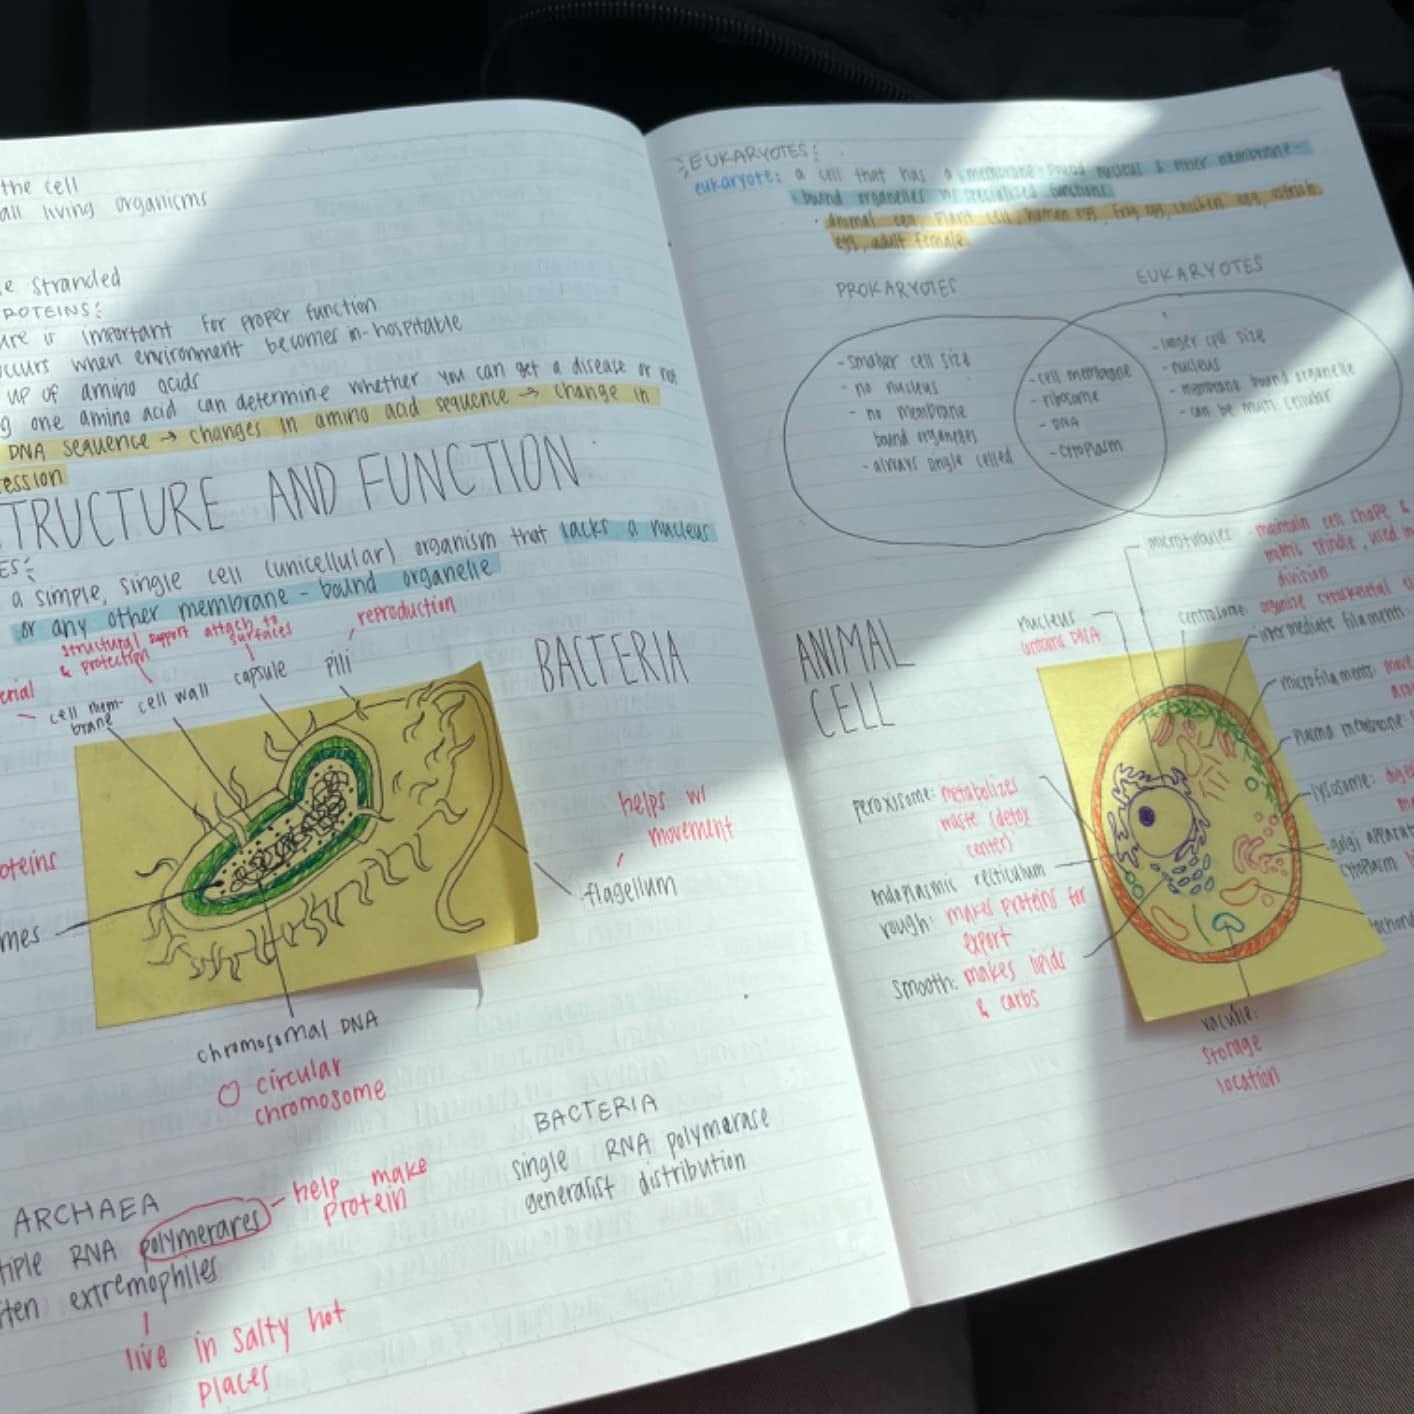 the cell
all living organisms
e stranded
ROTEINS:
ure is important for proper function
ccurs when environment becomes in-hospitable
up of amino acids
g one amino acid can determine whether you can get a disease or not
DNA sequence → changes in amino acid sequence → change in
ession
TRUCTURE AND FUNCTION
ES:
a simple, single cell (unicellular) organism that lacks a nucleus
or any other membrane-bound organelle
structural support
& protection
attach to
surfaces
reproduction
erial
cell mem-
brane
cell wall
capsule
pili
BACTERIA
helps w/
movement
flagellum
oteins
mes
chromosomal DNA
circular
chromosome
ARCHAEA
tiple RNA polymerares
help make
protein
ften extremophiles
live in salty hot
places
BACTERIA
single RNA polymerase
generalist distribution
EUKARYOTES:
eukaryote: a cell that has a membrane-bound nucleus & other membrane-
bound organelles w/ specialized functions
animal cell, plant cell, human egg, frog egg, chicken egg, ostrich
egg, adult female
PROKARYOTES
EUKARYOTES
- smaller cell size
- no nucleus
- no membrane
bound organelles
- always single celled
- cell membrane
- ribosome
- DNA
- cytoplasm
- larger cell size
- nucleus
- membrane bound organelle
- can be multi cellular
ANIMAL
CELL
microtubules maintain cell shape &
spindle, used in
division
nucleus
contains DNA
centrosome: organize cytoskeletal
intermediate filament
microfilaments: move
plasma membrane:
lysosome:
golgi apparat
cytoplasm
peroxisome: metabolizes
waste (detox
center)
endoplasmic recticulum
rough: makes proteins for
export
smooth: makes lipids
& carbs
vacuole:
storage
location